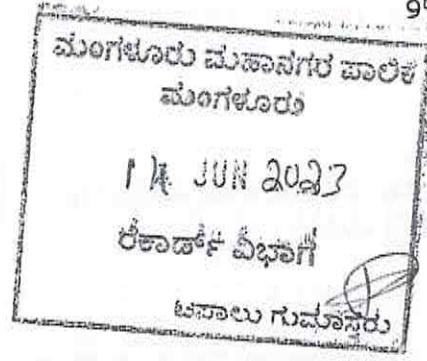 ಮಂಗಳೂರು ಮಹಾನಗರ ಪಾಲಿಕೆ
ಮಂಗಳೂರು
14 JUN 2023
ರೆಕಾರ್ಡ್ ವಿಭಾಗ
ಟಪಾಲು ಗುಮಾಸ್ತರು